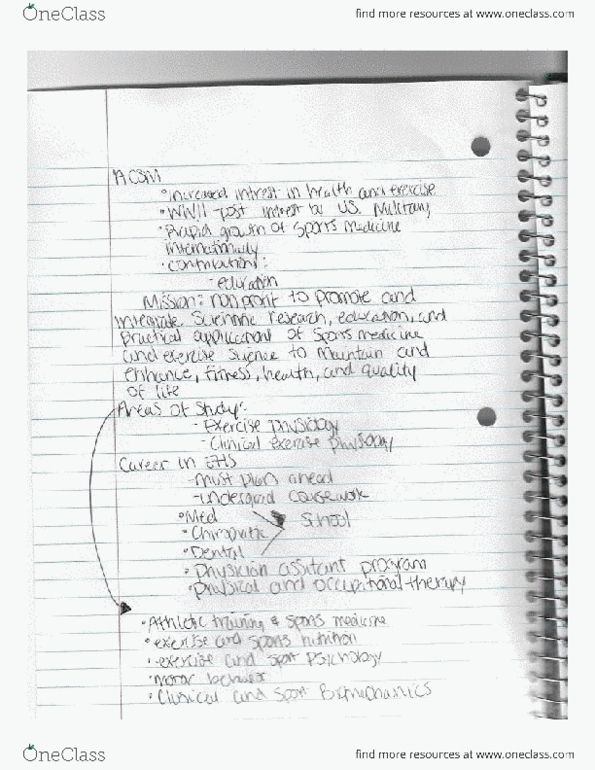 OneClass
find more resources at www.oneclass.com
ACSM
• increased intrest in health and exercise
• WWII post intrest by US. Military
• Rapid growth of sports medicine
internationally
• contributions:
- education
Mission: nonprofit to promote and
integrate scientific research, education, and
practical application of sports medicine
and exercise science to maintain and
enhance, fitness, health, and quality
of life
Areas of study:
- Exercise physiology
- Clinical exercise physiology
Career in EHS
- must plan ahead
- undergrad coursework
• Med
• Chiropractic
School
• Dental
• Physician assitant program
• Physical and occupational therapy
• Athletic training & sports medicine
• exercise and sports nutrition
• exercise and sport psychology
• motor behavior
• Clinical and sport Biomechanics
OneClass
find more resources at www.oneclass.com